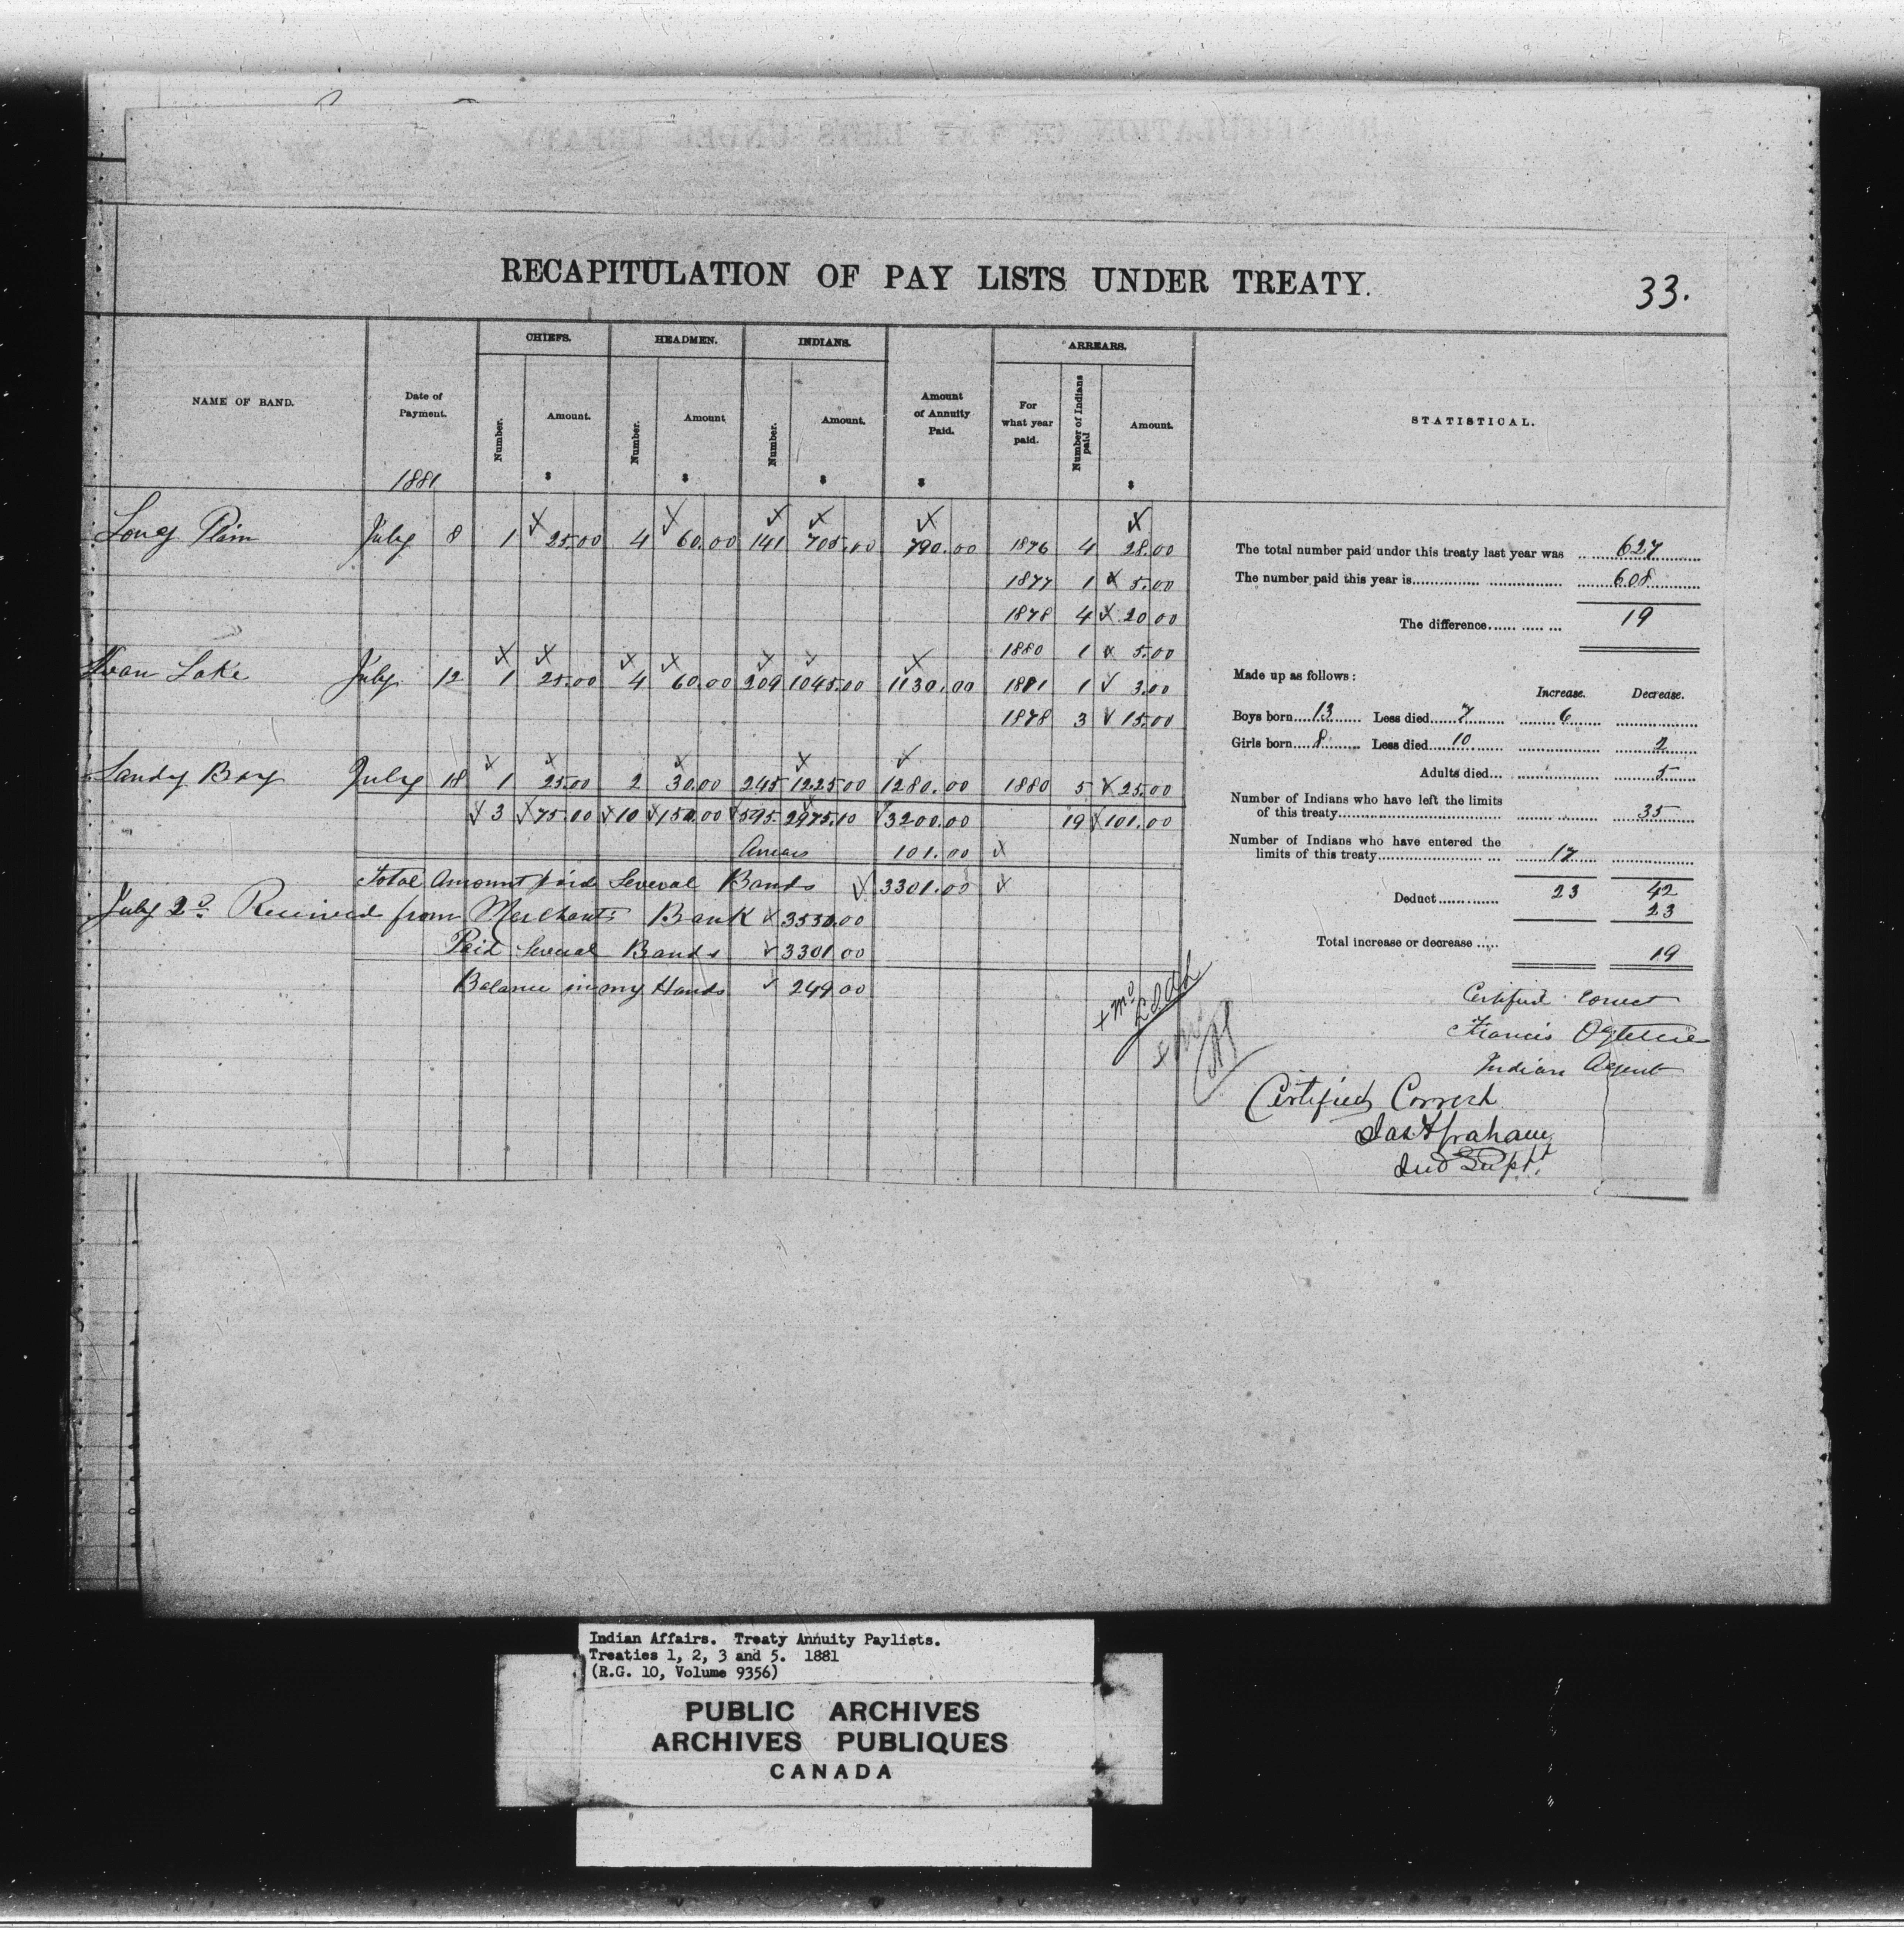 RECAPITULATION OF PAY LISTS UNDER TREATY.
33.
NAME OF BAND. Date of Payment. CHIEFS. HEADMEN. INDIANS. Amount of Annuity Paid. ARREARS. STATISTICAL.
Number. Amount. Number. Amount Number. Amount. For what year paid. Number of Indians paid Amount.
1881 $ $ $ $ $
Long Plain July 8 1 25.00 4 60.00 141 705.00 790.00 1876 4 28.00
1877 1 5.00
1878 4 20.00
1880 1 5.00
Swan Lake July 12 1 25.00 4 60.00 209 1045.00 1130.00 1881 1 3.00
1878 3 15.00
Sandy Bay July 18 1 25.00 2 30.00 245 1225.00 1280.00 1880 5 25.00
3 75.00 10 150.00 595 2975.00 3200.00 19 101.00
Arrears 101.00
Total Amount paid Several Bands 3301.00
July 2d Received from Merchants Bank 3550.00
Paid Several Bands 3301.00
Balance in my Hands 249.00
The total number paid under this treaty last year was 627
The number paid this year is 608
The difference 19
Made up as follows:
Increase. Decrease.
Boys born 13 Less died 7 6
Girls born 8 Less died 10 2
Adults died 5
Number of Indians who have left the limits
of this treaty 35
Number of Indians who have entered the
limits of this treaty 17
Deduct 23 42
23
Total increase or decrease 19
Certified Correct
Francis Ogletree
Indian Agent
Certified Correct
Jas Graham
Ind Supt.
Indian Affairs. Treaty Annuity Paylists.
Treaties 1, 2, 3 and 5. 1881
(R.G. 10, Volume 9356)
PUBLIC ARCHIVES
ARCHIVES PUBLIQUES
CANADA